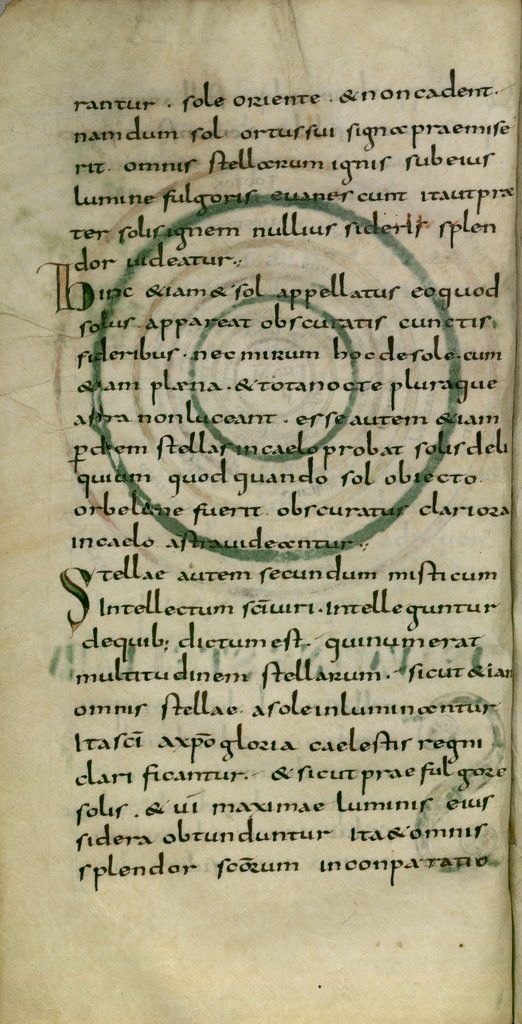 rantur . sole oriente . & non cadent .
nam dum sol ortus sui signa praemise
rit . omnis stellarum ignis sub eius
lumine fulgoris evanescunt ita ut prae
ter solis ignem nullius sideris splen
dor uideatur ;
hinc &iam & sol appellatus eo quod
solus appareat obscuratis cunctis
sideribus . nec mirum hoc de sole . cum
&iam plaena . & tota nocte pluraque
astra non luceant . esse autem &iam
p dem stellas in caelo probat solis deli
quium quod quando sol obiecto
orbe lune fuerit . obscuratus clariora
in caelo astra uidentur ;
Stellae autem secundum misticum
Intellectum sci uiri . Intelleguntur
de quib; dictum est . qui numerat
multitudinem stellarum . sicut &iam
omnis stellae . a sole inluminantur
Ita sci a xpo gloria caelestis regni
clarificantur . & sicut prae fulgore
solis . & ui maximae luminis eius
sidera obtunduntur Ita & omnis
splendor scorum in conparatio